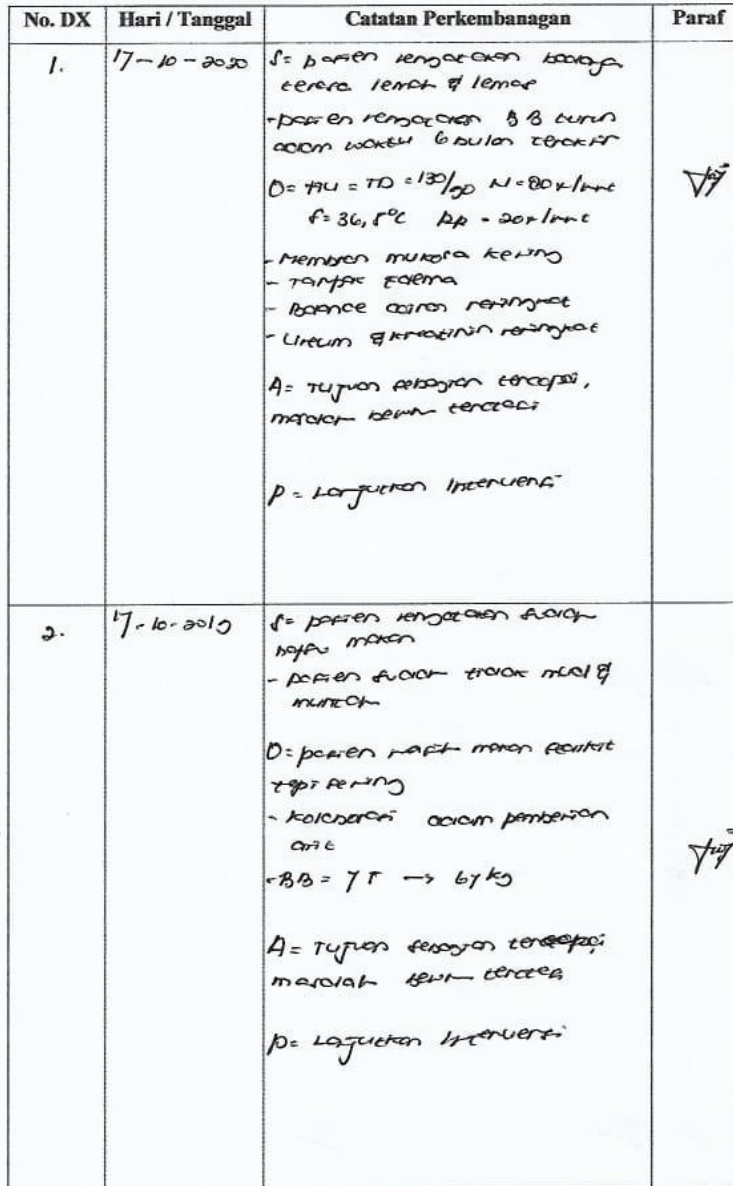 No. DX Hari / Tanggal Catatan Perkembanagan Paraf
1. 17-10-2020 S= pasien mengatakan badannya
terasa lemah & lemas
- pasien mengatakan BB turun
dalam waktu 6 bulan terakhir
O= TTV = TD = 130/90 N = 80x/mnt
S= 36,5°C RR = 20x/mnt
- Membran mukosa kering
- Tampak edema
- Balance cairan meningkat
- Ureum & kreatinin meningkat
A= Tujuan sebagian tercapai,
masalah belum teratasi
P= Lanjutkan Intervensi
2. 17-10-2019 S= pasien mengatakan sudah
nafsu makan
- pasien sudah tidak mual &
muntah
O= pasien masih makan sedikit
tapi sering
- Kolaborasi dalam pemberian
diit
- BB = 75 -> 67 kg
A= Tujuan sebagian tercapai
masalah belum teratasi
P= Lanjutkan Intervensi